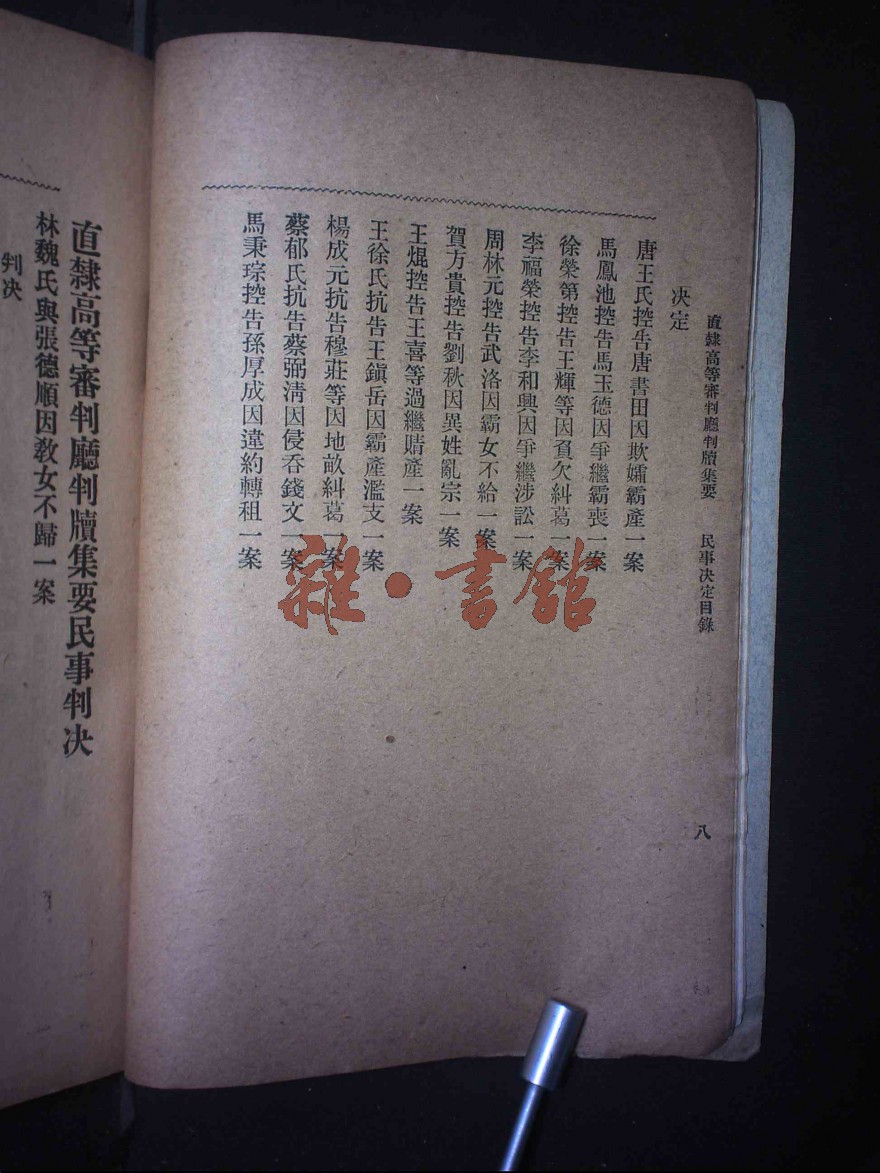 直隸高等審判廳判牘集要　民事决定目錄　八
决定
唐王氏控告唐書田因欺孀霸產一案
馬鳳池控告馬玉德因爭繼霸喪一案
徐榮第控告王輝等因負欠糾葛一案
李福榮控告李和興因爭繼涉訟一案
周林元控告武洛因霸女不給一案
賀方貴控告劉秋因異姓亂宗一案
王焜控告王喜等過繼賭產一案
王徐氏抗告王鎭岳因霸產濫支一案
楊成元抗告穆莊等因地畝糾葛一案
蔡郁氏抗告蔡弼淸因侵吞錢文一案
馬秉琮控告孫厚成因違約轉租一案
雜·書館
直隸高等審判廳判牘集要民事判决
林魏氏與張德順因敎女不歸一案
判决